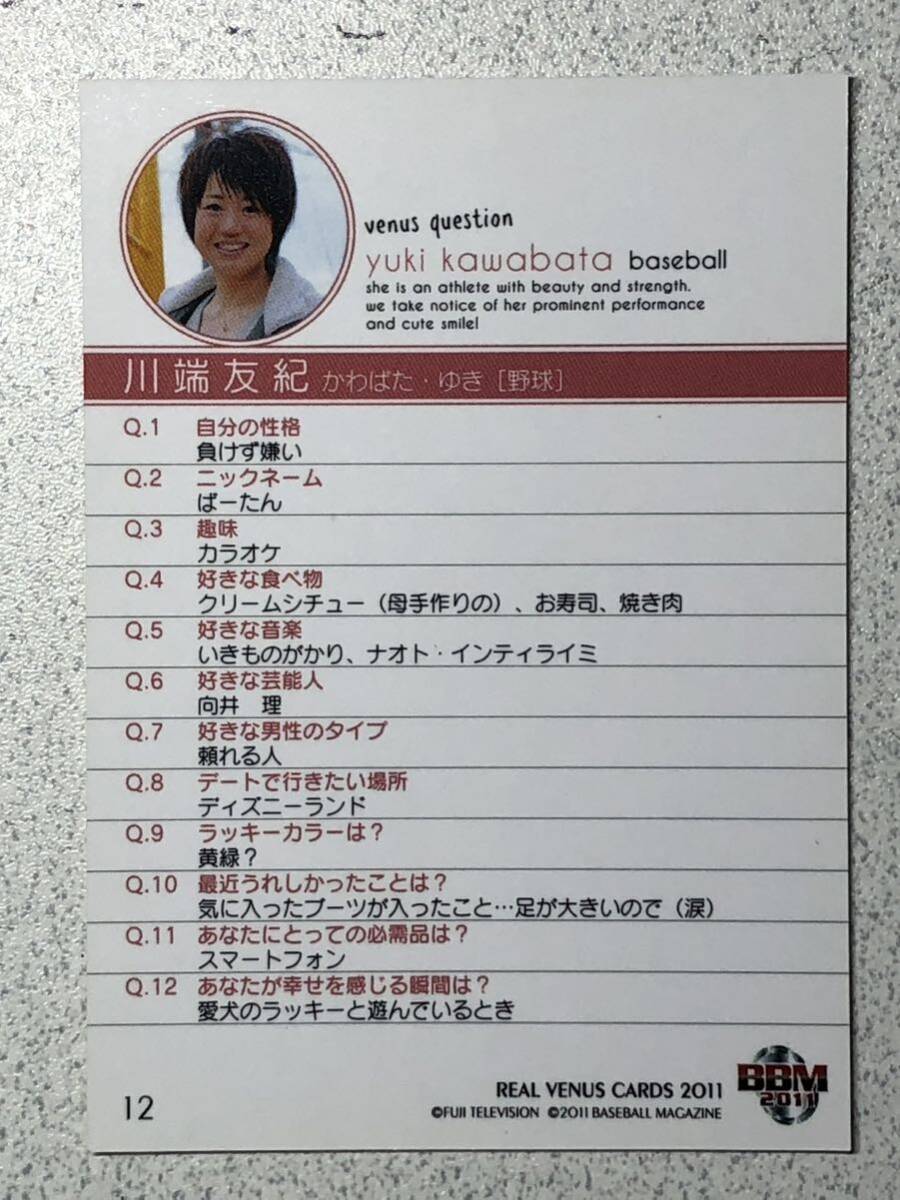 venus question
yuki kawabata baseball
she is an athlete with beauty and strength.
we take notice of her prominent performance
and cute smile!
川端友紀 かわばた・ゆき [野球]
Q.1 自分の性格
負けず嫌い
Q.2 ニックネーム
ばーたん
Q.3 趣味
カラオケ
Q.4 好きな食べ物
クリームシチュー（母手作りの）、お寿司、焼き肉
Q.5 好きな音楽
いきものがかり、ナオト・インティライミ
Q.6 好きな芸能人
向井　理
Q.7 好きな男性のタイプ
頼れる人
Q.8 デートで行きたい場所
ディズニーランド
Q.9 ラッキーカラーは？
黄緑？
Q.10 最近うれしかったことは？
気に入ったブーツが入ったこと…足が大きいので（涙）
Q.11 あなたにとっての必需品は？
スマートフォン
Q.12 あなたが幸せを感じる瞬間は？
愛犬のラッキーと遊んでいるとき
12
REAL VENUS CARDS 2011
©FUJI TELEVISION ©2011 BASEBALL MAGAZINE
BBM
2011